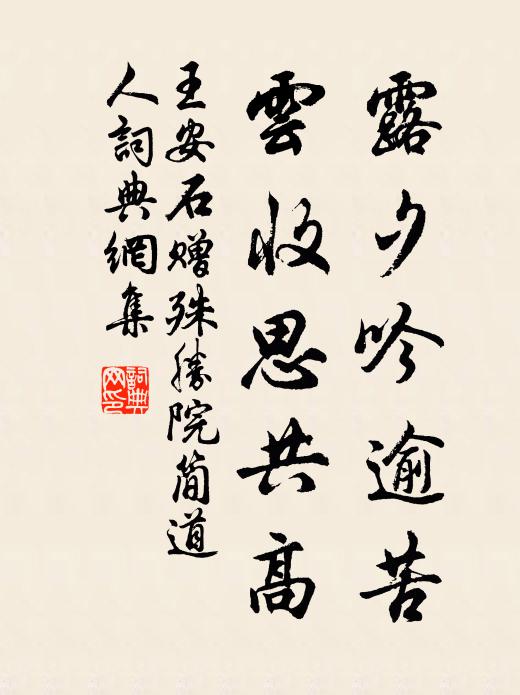 露夕吟逾苦
雲收思共高
王安石贈殊勝院簡道
人詞典網集
詞典網印